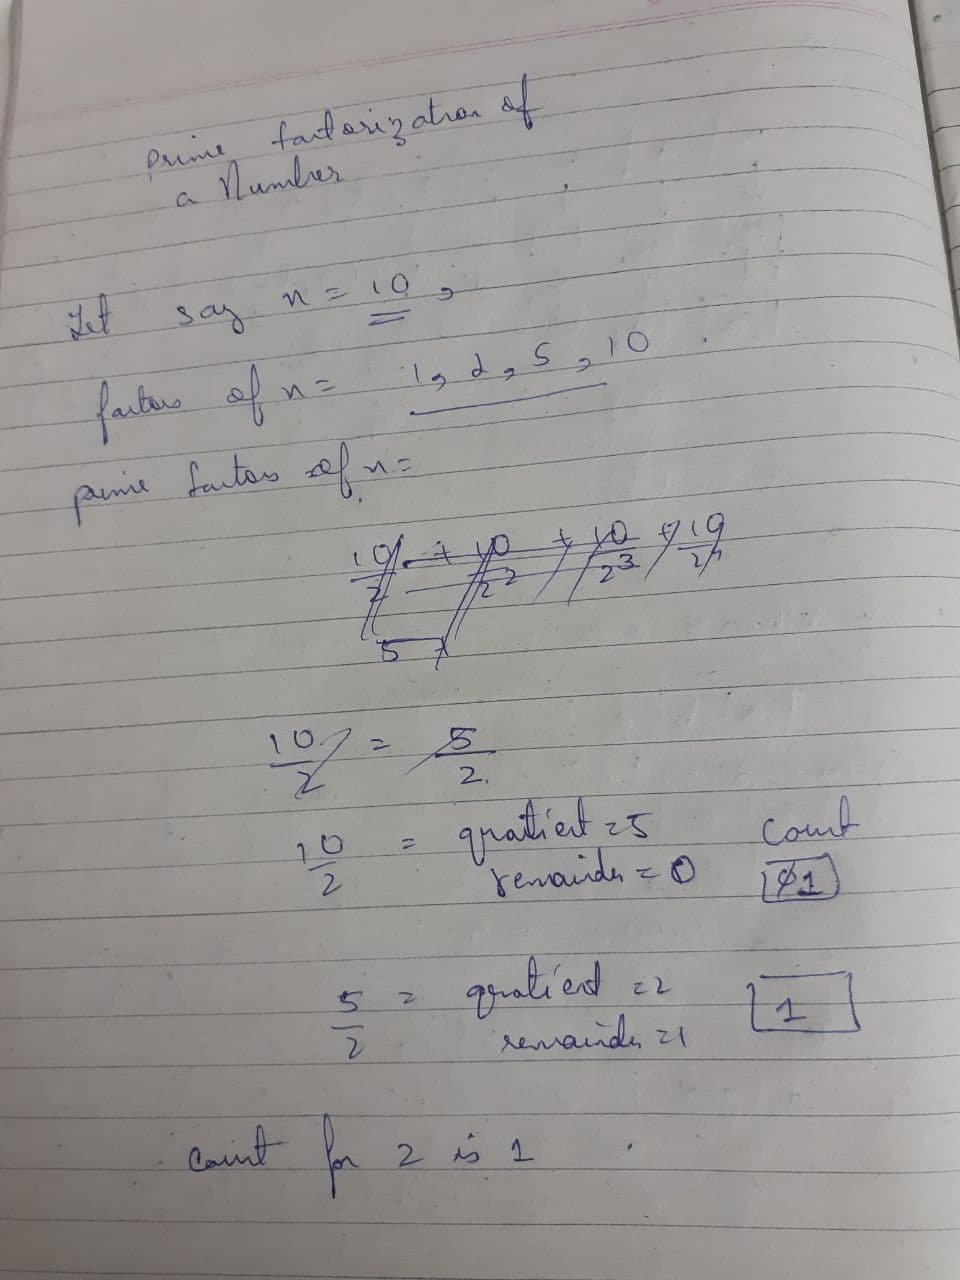 Prime factorization of
a Number
Let say n = 10,
factors of n = 1, 2, 5, 10
prime factors of n =
10/2 + 10/2² + 10/2³ +
5
10/2 = 5/2
10/2 = quotient = 5 count
remainder = 0 0 1
5/2 = quotient = 2 1
remainder = 1
count for 2 is 1